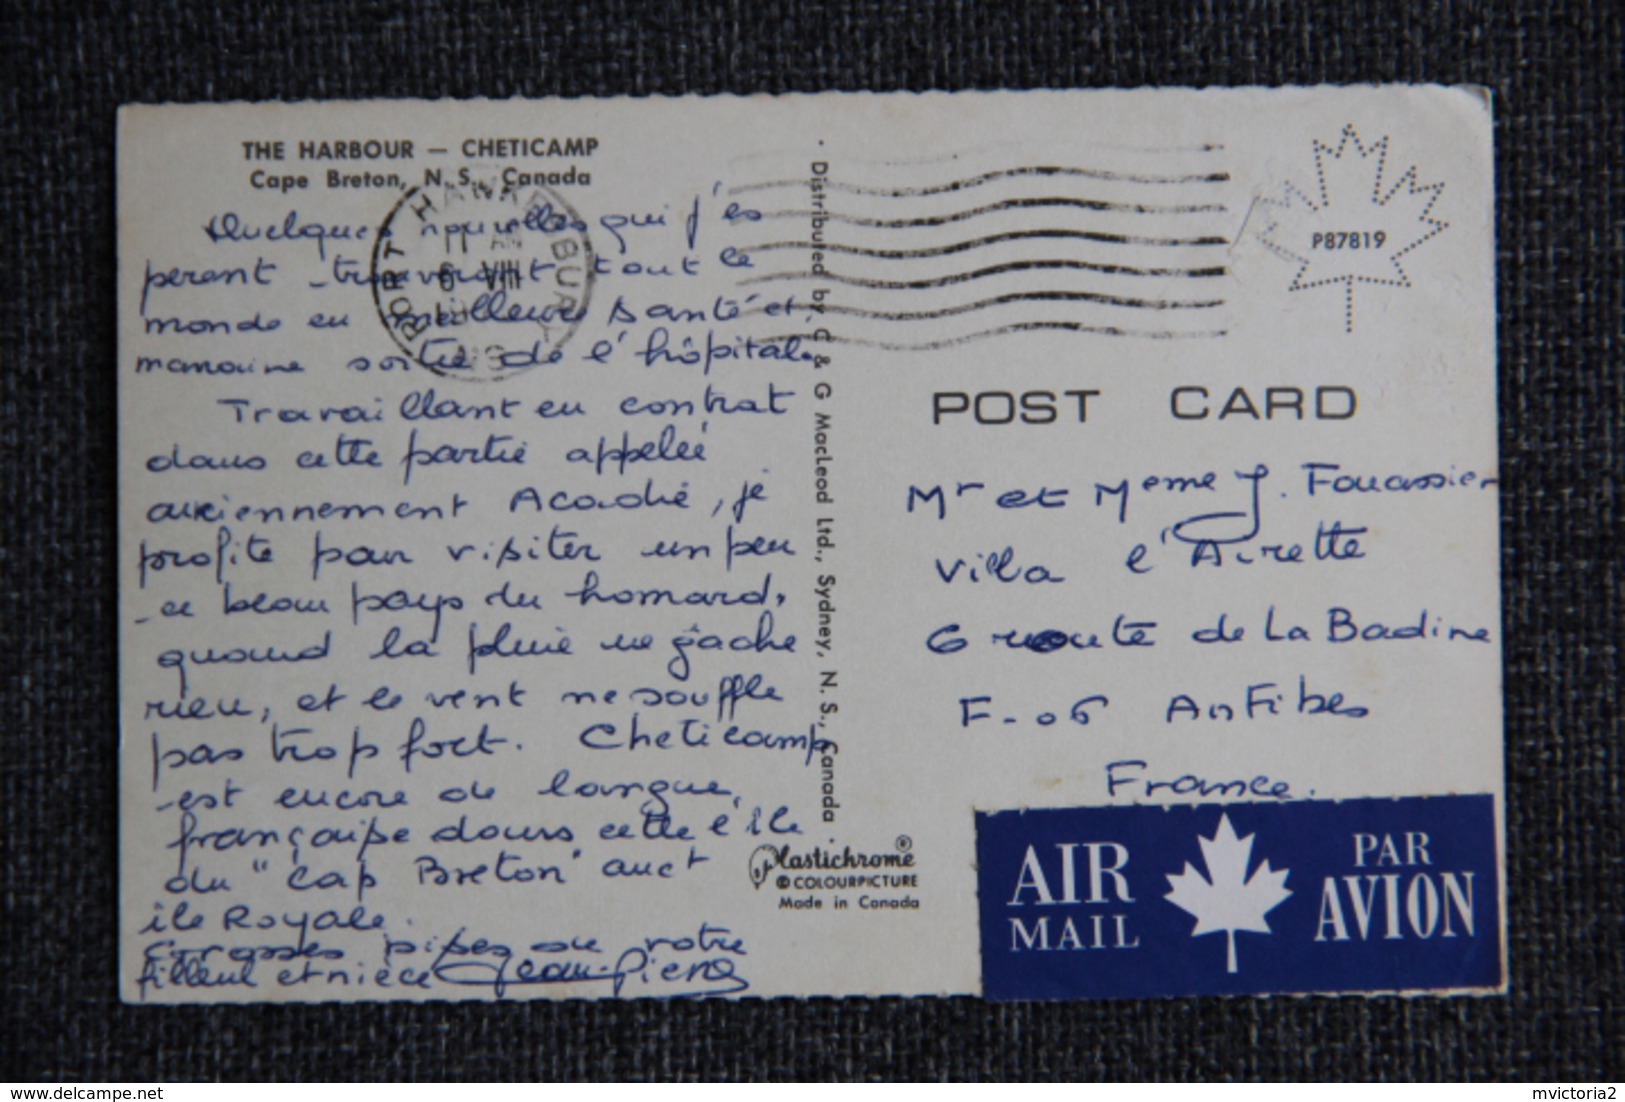 THE HARBOUR — CHETICAMP
Cape Breton, N. S., Canada
Quelques nouvelles qui j'es
perent trouveront tout le
monde en meilleure santé et
manoune sortie de l'hôpital.
Travaillant en contrat
dans cette partie appelée
anciennement Acadie, je
profite pour visiter un peu
ce beau pays du homard,
quand la pluie ne gâche
rien, et le vent ne souffle
pas trop fort. Cheticamp
est encore de langue
française dans cette l'île
du "Cap Breton" anct
île Royale.
Grosses bises de votre
filleul et nièce Jean-Pierre
PORT HAWKESBURY
11 AM
6 VIII
N.S.
· Distributed by C & G MacLeod Ltd., Sydney, N. S., Canada ·
Plastichrome ®
© COLOURPICTURE
Made in Canada
P87819
POST CARD
Mr et Meme J. Fouassier
Villa l'Airette
6 route de La Badine
F-06 Antibes
France.
AIR
MAIL
PAR
AVION
https://www.delcampe.net
mvictoria2